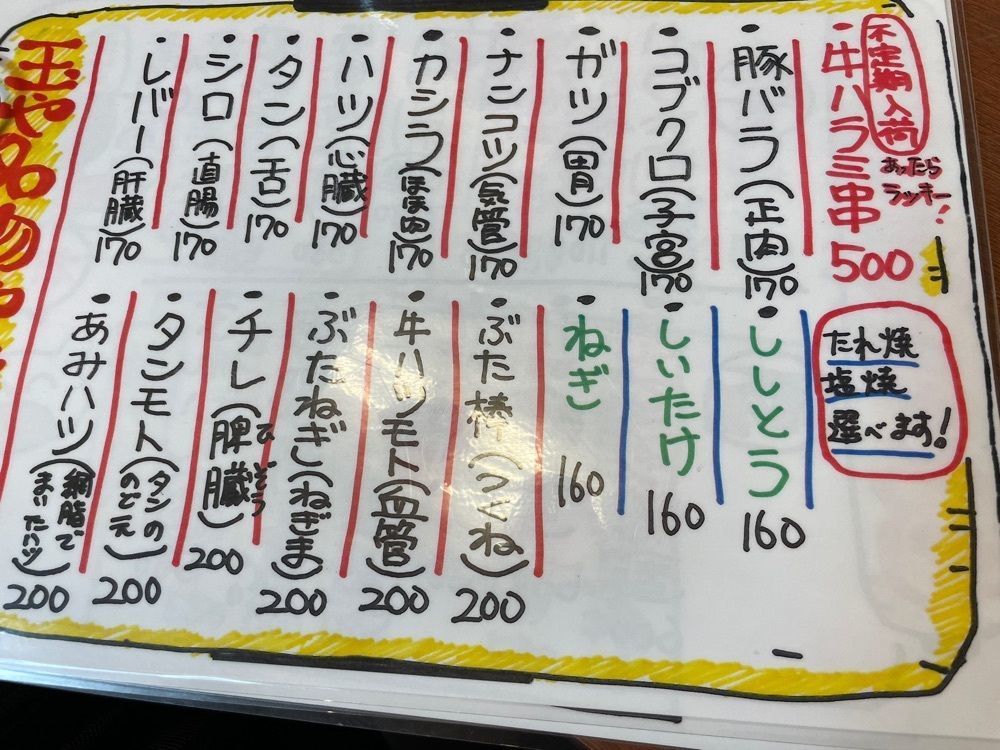 不定期入荷
あったら
ラッキー!
牛ハラミ串 500
豚バラ(正肉)170
コブクロ(子宮)170
ガツ(胃)170
ナンコツ(気管)170
カシラ(ほほ肉)170
ハツ(心臓)170
タン(舌)170
シロ(直腸)170
レバー(肝臓)170
たれ焼
塩焼
選べます!
ししとう 160
しいたけ 160
ねぎ 160
ぶた棒(つくね)200
牛ハツモト(血管)200
ぶたねぎ(ねぎま)200
チレ(脾臓)200
ひぞう
タンモト(タンの
のどえ)200
あみハツ(網脂で
まいたハツ)200
玉や名物